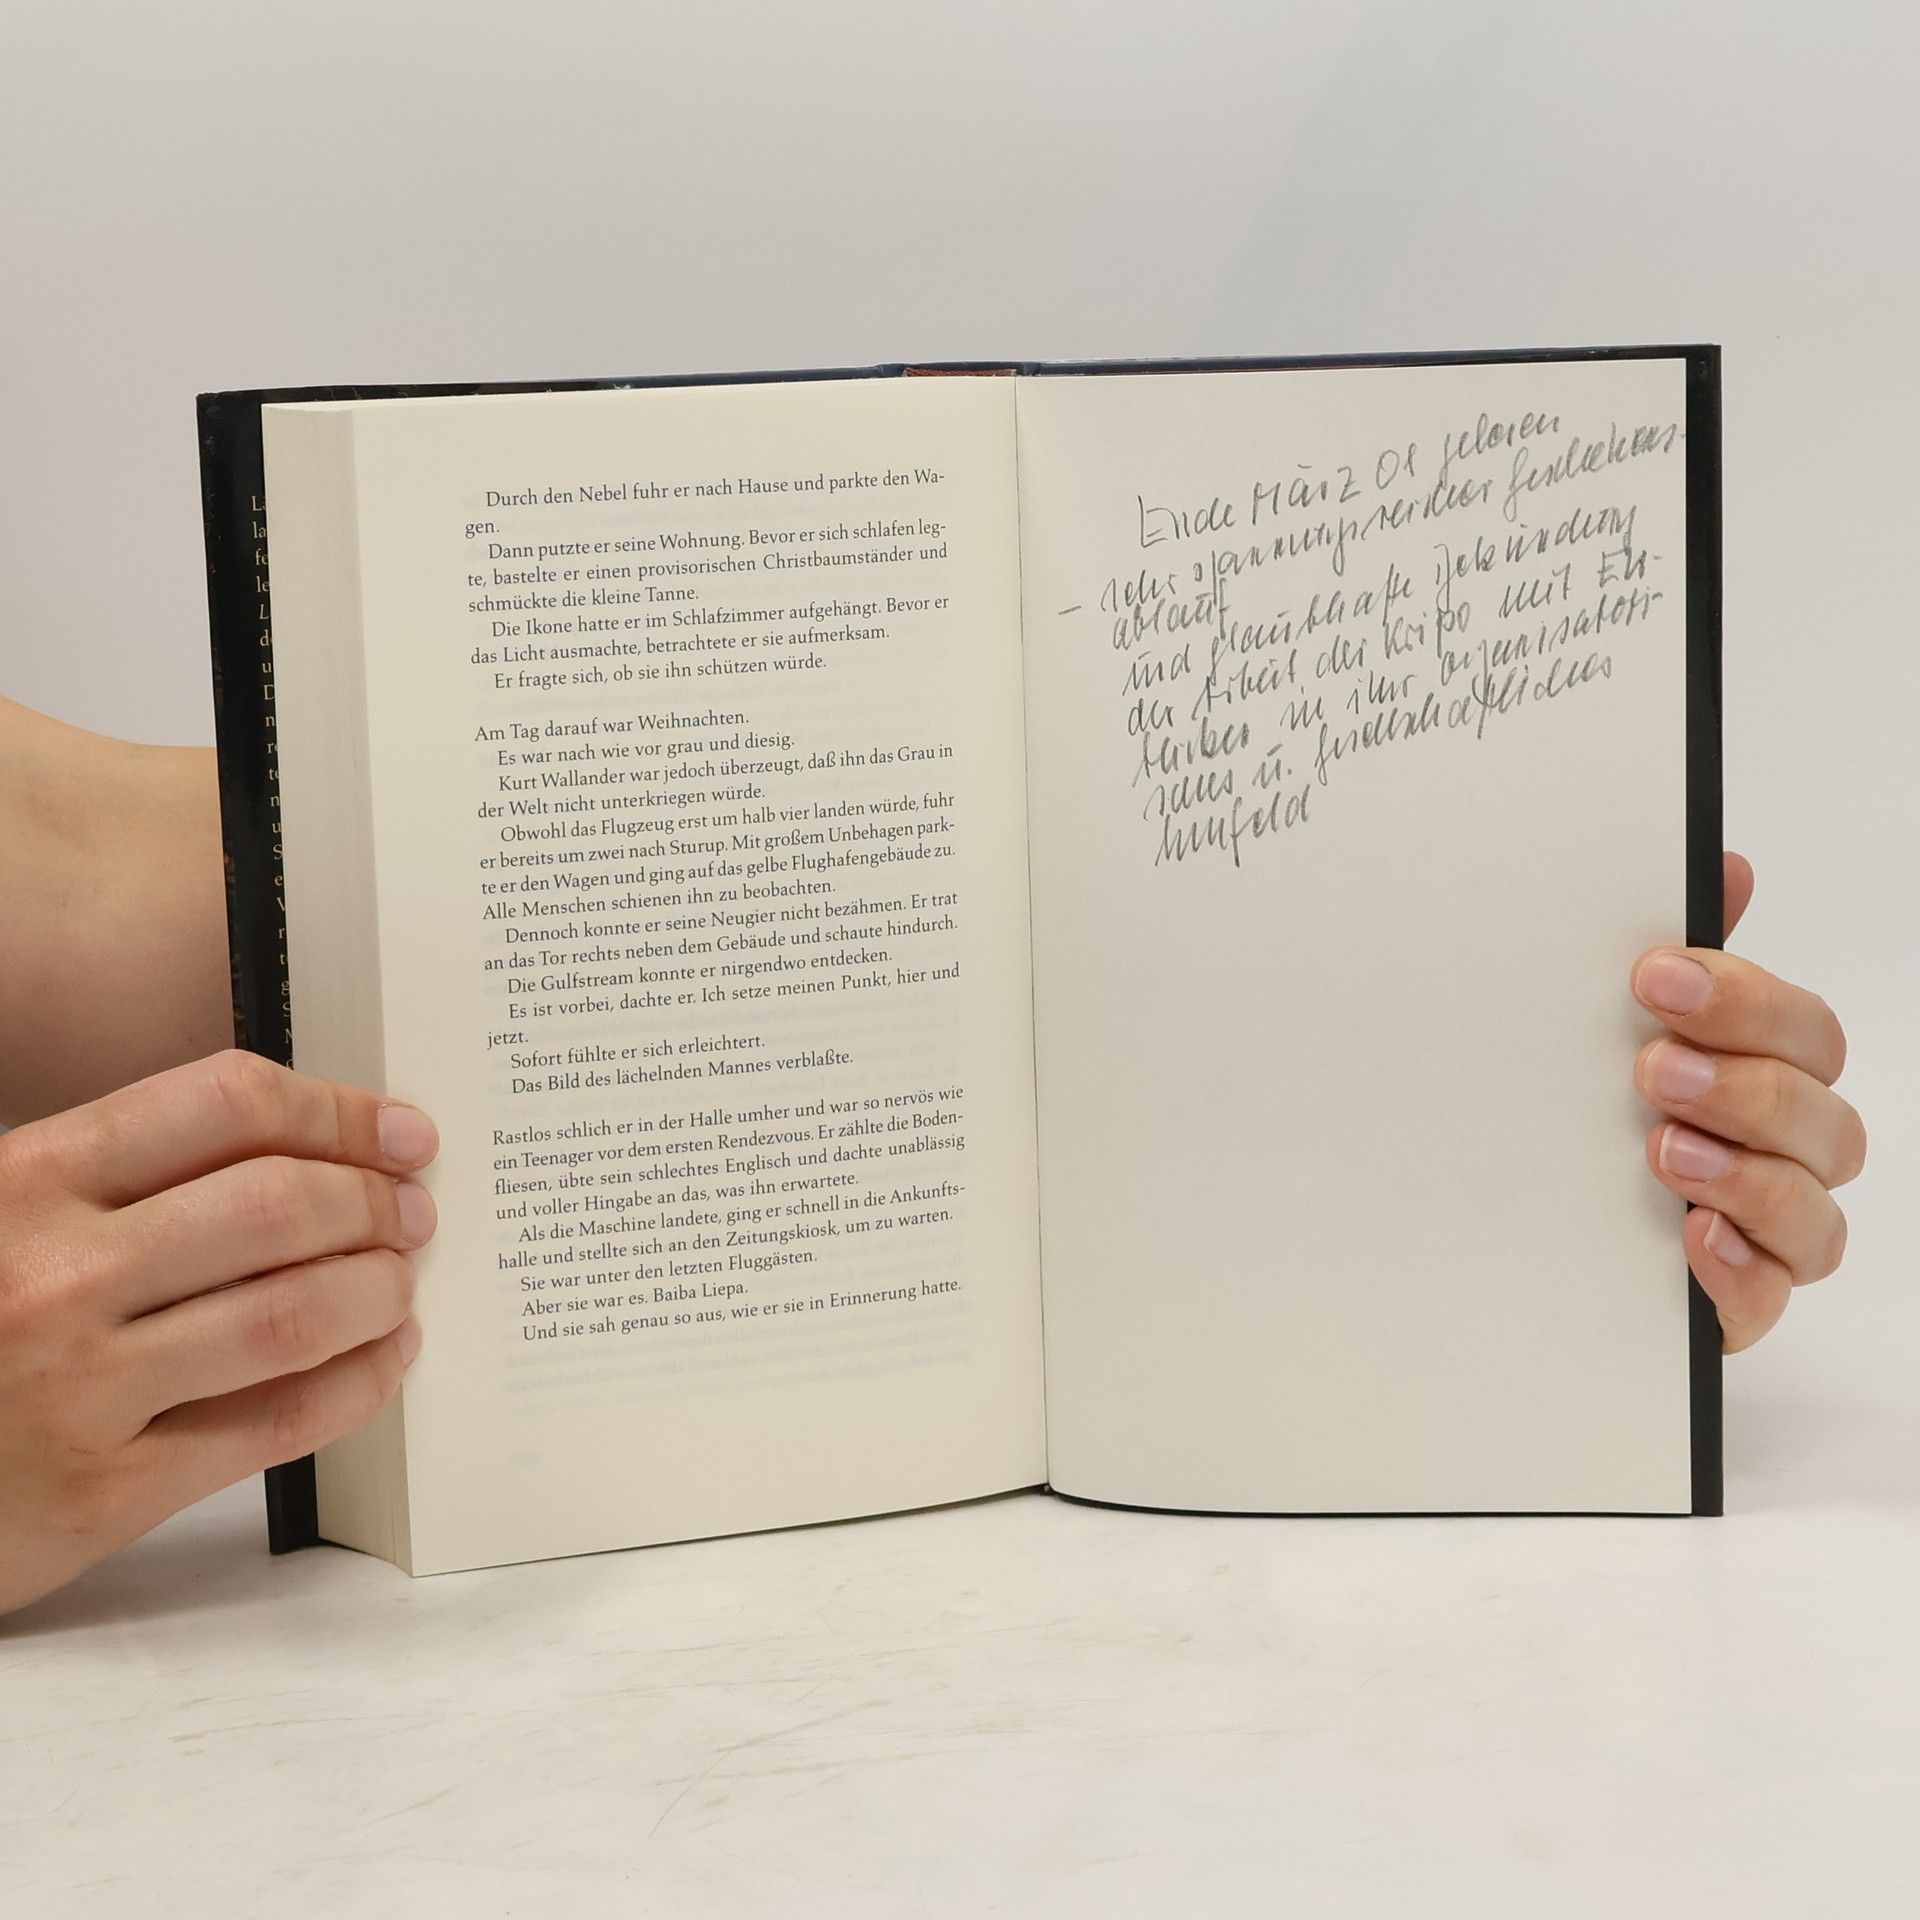 Durch den Nebel fuhr er nach Hause und parkte den Wa-
gen.
Dann putzte er seine Wohnung. Bevor er sich schlafen leg-
te, bastelte er einen provisorischen Christbaumständer und
schmückte die kleine Tanne.
Die Ikone hatte er im Schlafzimmer aufgehängt. Bevor er
das Licht ausmachte, betrachtete er sie aufmerksam.
Er fragte sich, ob sie ihn schützen würde.
Am Tag darauf war Weihnachten.
Es war nach wie vor grau und diesig.
Kurt Wallander war jedoch überzeugt, daß ihn das Grau in
der Welt nicht unterkriegen würde.
Obwohl das Flugzeug erst um halb vier landen würde, fuhr
er bereits um zwei nach Sturup. Mit großem Unbehagen park-
te er den Wagen und ging auf das gelbe Flughafengebäude zu.
Alle Menschen schienen ihn zu beobachten.
Dennoch konnte er seine Neugier nicht bezähmen. Er trat
an das Tor rechts neben dem Gebäude und schaute hindurch.
Die Gulfstream konnte er nirgendwo entdecken.
Es ist vorbei, dachte er. Ich setze meinen Punkt, hier und
jetzt.
Sofort fühlte er sich erleichtert.
Das Bild des lächelnden Mannes verblaßte.
Rastlos schlich er in der Halle umher und war so nervös wie
ein Teenager vor dem ersten Rendezvous. Er zählte die Boden-
fliesen, übte sein schlechtes Englisch und dachte unablässig
und voller Hingabe an das, was ihn erwartete.
Als die Maschine landete, ging er schnell in die Ankunfts-
halle und stellte sich an den Zeitungskiosk, um zu warten.
Sie war unter den letzten Fluggästen.
Aber sie war es. Baiba Liepa.
Und sie sah genau so aus, wie er sie in Erinnerung hatte.
Ende März 01 gelesen
– sehr spannungsreicher Geschehens-
ablauf
und glaubhafte
der Arbeit der Kripo mit Ein-
in ihr organisatori-
sches u. gesellschaftliches
Umfeld